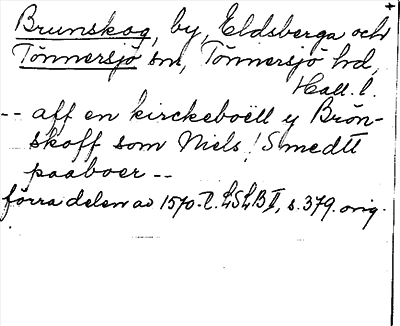 Brunskog, by, Eldsberga och
Tönnersjö sn, Tönnersjö hd,
Hall. l.
-- aff en kirckeboëll y Brön-
skoff som Niels! Smedtt
paaboer --
förra delen av 1570-t. LSLB II, s. 379. orig.